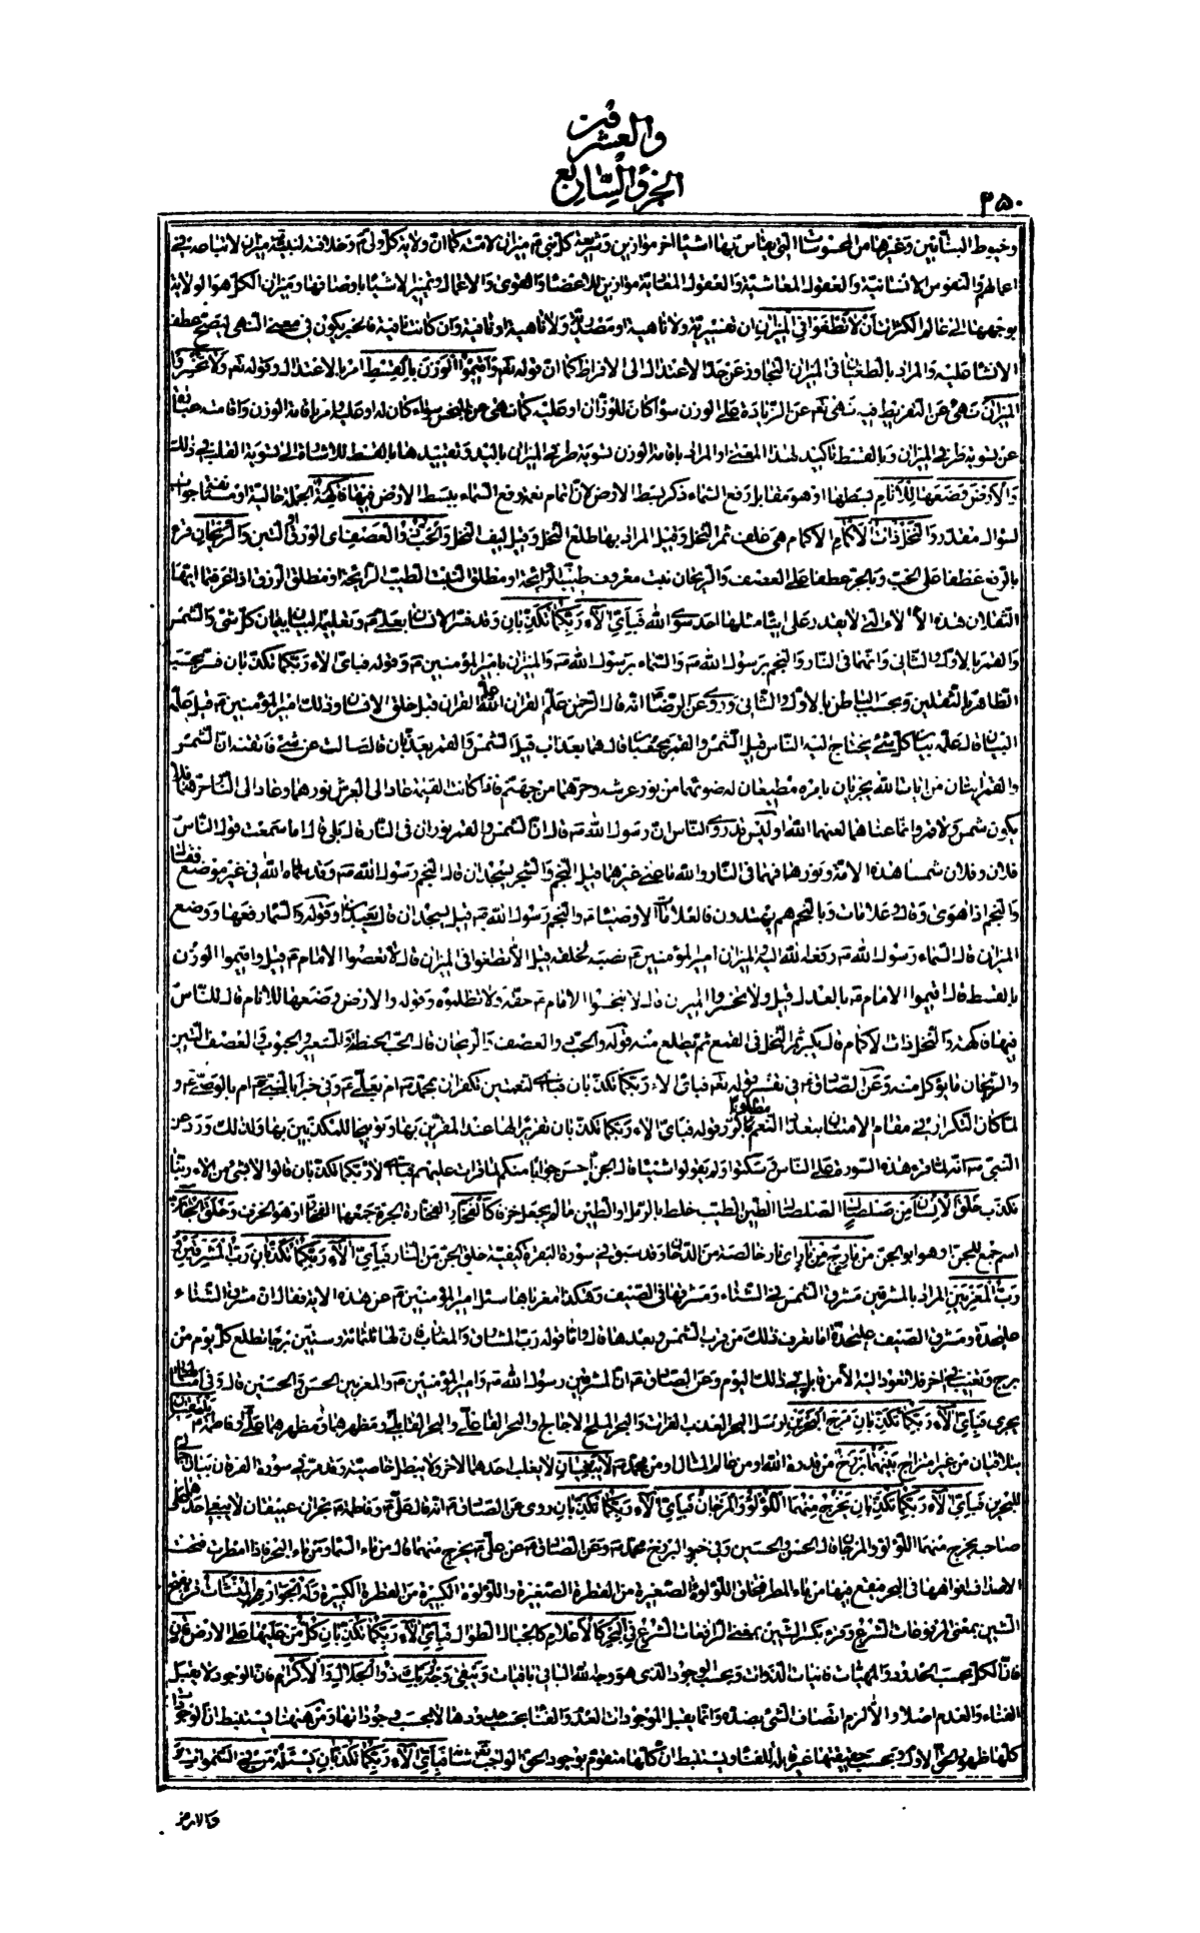 والعشرون
الجزؤ السابع
٢٥٠
وخيوط البنائين وغيرها من المحسوسات التي يقاس بها اشياء اخر موازين وشريعة كل نبي ميزان لامته كما ان ولاية كل ولي وخلافته لنبيه ميزان لاتباعه في
اعمالهم والنفوس الانسانية والعقول المعاشية والعقول المعادية موازين للاعضاء والقوى والاعمال وتميز الاشياء باوصافها وميزان الكل هو الولاية
بوجهها الى عالم الكثرات أن لا تطغوا في الميزان ان تفسيرية ولا ناهية او مصدرية ولا ناهية او نافية وان كانت نافية فالخبر يكون في معنى النهى ليصح عطف
الانشاء عليه والمراد بالطغيان في الميزان التجاوز عن حد الاعتدال الى الافراط كما ان قوله تعم وأقيموا الوزن بالقسط امر بالاعتدال وقوله تعم ولا تخسروا
الميزان نهى عن التفريط فيه نهى تعم عن الزيادة على الوزن سواء كان للوزان او عليه كما نهى عن البخس سواء كان له او عليه وامر باقامة الوزن واقامته عبارة
عن تسوية طرفي الميزان وبالقسط تأكيد لهذا المعنى او المراد باقامة الوزن تسوية طرفي الميزان باليد وتقييدها بالقسط للاشارة الى تسوية القلب في ذلك
والأرض وضعها للأنام بسطها او هو مقابل رفع السماء ذكر بسط الارض لان تمام نعمة رفع السماء ببسط الارض فيها فاكهة الجملة حالية او مستأنفة جواب
لسؤال مقدر والنخل ذات الأكمام الاكمام هى غلف ثمر النخل وقيل المراد بها طلع النخل وقيل ليف النخل والحب ذو العصف اى الورق او التبن والريحان قرئ
بالرفع عطفا على الحب وبالجر عطفا على العصف والريحان نبت معروف طيب الرائحة او مطلق النبت الطيب الرائحة او مطلق الرزق اذا عرفتما ايها
الثقلان هذه الالاء التي لا يقدر على اتيان مثلها احد سوى الله فبأي آلاء ربكما تكذبان وقد فسر الانسان بعلي وتعليم البيان ببيان كل شئ والشمس
والقمر بالاول والثانى وانهما في النار والنجم برسول الله والسماء برسول الله والميزان بامير المؤمنين وقوله فباى الاء ربكما تكذبان فسر بحسب
الظاهر بالثقلين وبحسب الباطن بالاول والثانى وروى عن الرضا انه قال الرحمن علم القرآن الله علم القران قبل خلق الانسان وذلك امير المؤمنين قيل علمه
البيان قال علمه بيان كل شئ يحتاج اليه الناس قيل الشمس والقمر بحسبان قال هما بعذاب قيل الشمس والقمر يعذبان قال سالت عن شئ فاتقنه ان الشمس
والقمر ايتان من ايات الله يجريان بامره مطيعان له ضوئهما من نور عرشه وحرهما من جهنم فاذا كانت القيمة عاد الى العرش نورهما وعاد الى النار حرهما فلا
يكون شمس ولا قمر وانما عناهما لعنهما الله اوليس قد روى الناس ان رسول الله قال ان الشمس والقمر نوران في النار قال بلى قال اما سمعت قول الناس
فلان وفلان شمسا هذه الامة ونورها فهما في النار والله ما عنى غيرهما قيل النجم والشجر يسجدان قال النجم رسول الله وقد سماه الله في غير موضع فقال
والنجم اذا هوى وقال وعلامات وبالنجم هم يهتدون فالعلامات الاوصياء والنجم رسول الله قيل يسجدان قال يعبدان وقوله والسماء رفعها ووضع
الميزان قال السماء رسول الله رفعه الله اليه والميزان امير المؤمنين نصبه لخلقه قيل الا تطغوا في الميزان قال لا تعصوا الامام قيل واقيموا الوزن
بالقسط قال اقيموا الامام بالعدل قيل ولا تخسروا الميزان قال لا تبخسوا الامام حقه ولا تظلموه وقوله والارض وضعها للانام قال للناس
فيها فاكهة والنخل ذات الاكمام قال يكبر ثمر النخل في القمع ثم يطلع منه قوله والحب ذو العصف والريحان قال الحب الحنطة والشعير والحبوب والعصف التبن
والريحان ما يؤكل منه وعن الصادق في تفسير قوله تعم فباى الاء ربكما تكذبان فباى النعمتين تكفران بمحمد ام بعلي وفي خبر ابالنبي ام بالوصي و
لما كان التكرار في مقام الامتنان بتعداد النعم مطلوبا كرر قوله فباى الاء ربكما تكذبان تقريرا لها عند المقرين بها وتوبيخا للمكذبين بها ولذلك ورد عن
النبى انه لما قرء هذه السورة على الناس سكتوا ولم يقولوا شيئا قال الجن احسن جوابا منكم لما قرات عليهم فباى الاء ربكما تكذبان قالوا لا بشئ من الاء ربنا
نكذب خلق الإنسان من صلصال الصلصال الطين الطيب خلط بالرمل او الطين مالم يجعل خزفا كالفخار الفخارة الجرة جمعها الفخار او هو الخزف وخلق الجان
اسم جمع للجن او هو ابو الجن من مارج من نار اى نار خالصة من الدخان وقد سبق في سورة البقرة كيفية خلق الجن من النار فبأي آلاء ربكما تكذبان رب المشرقين و
رب المغربين المراد بالمشرقين مشرق الشمس في الشتاء ومشرقها في الصيف وهكذا مغرباها سئل امير المؤمنين عن هذه الاية فقال ان مشرق الشتاء
على حدة ومشرق الصيف على حدة اما تعرف ذلك من قرب الشمس وبعدها قال واما قوله رب المشارق والمغارب فان لها ثلثمائة وستين برجا تطلع كل يوم من
برج وتغيب في اخر فلا تعود اليه الا من قابل في ذلك اليوم وعن الصادق ان المشرقين رسول الله وامير المؤمنين والمغربين الحسن والحسين قال وفي امثالهما
تجرى فبأي آلاء ربكما تكذبان مرج البحرين يرسل البحر العذب الفرات والبحر الملح الاجاج والبحر الفاعلي والبحر القابلي ومظهرهما ومظهرهما على وفاطمة يلتقيان
يتلاقيان من غير امتزاج بينهما برزخ من قدرة الله او من عالم المثال او من محمد لا يبغيان لا يغلب احدهما الاخر ولا يبطل خاصيته وقد مر في سورة الفرقان بيان
للبحرين فبأي آلاء ربكما تكذبان يخرج منهما اللؤلؤ والمرجان فبأي آلاء ربكما تكذبان روى عن الصادق انه قال علي وفاطمة بحران عميقان لا يبغى احدهما على
صاحبه يخرج منهما اللؤلؤ والمرجان قال الحسن والحسين وفي خبر البرزخ محمد وعن الصادق عن علي يخرج منهما قال من ماء السماء ومن ماء البحر فاذا امطرت فتحت
الاصداف افواهها في البحر فيقع فيها من ماء المطر فتخلق اللؤلؤة الصغيرة من القطرة الصغيرة واللؤلؤة الكبيرة من القطرة الكبيرة وله الجوار المنشآت قرئ بفتح
الشين بمعنى المرفوعات الشرع وقرء بكسر الشين بمعنى الرافعات الشرع في البحر كالأعلام كالجبال الطوال فبأي آلاء ربكما تكذبان كل من عليها على الارض فان
فان الكل بحسب الحدود والمهيات فانيات الذوات وبحسب الوجود الذى هو وجه الله الباقي باقيات ويبقى وجه ربك ذو الجلال والأكرام فان الوجود لا يقبل
الفناء والعدم اصلا والا لزم اتصاف الشئ بضده وانما يقبل الموجودات العدم والفناء بحسب حدودها لا بحسب وجوداتها ومن هيهنا يستنبط ان الوجودات
كلها ظهور الحق الاول وبحسب حقيقتها غير قابلة للفناء ويستنبط ان كلها متقوم بوجود الحق الواجب تعالى شأنه فبأي آلاء ربكما تكذبان يسئله من في السموات و
والارض